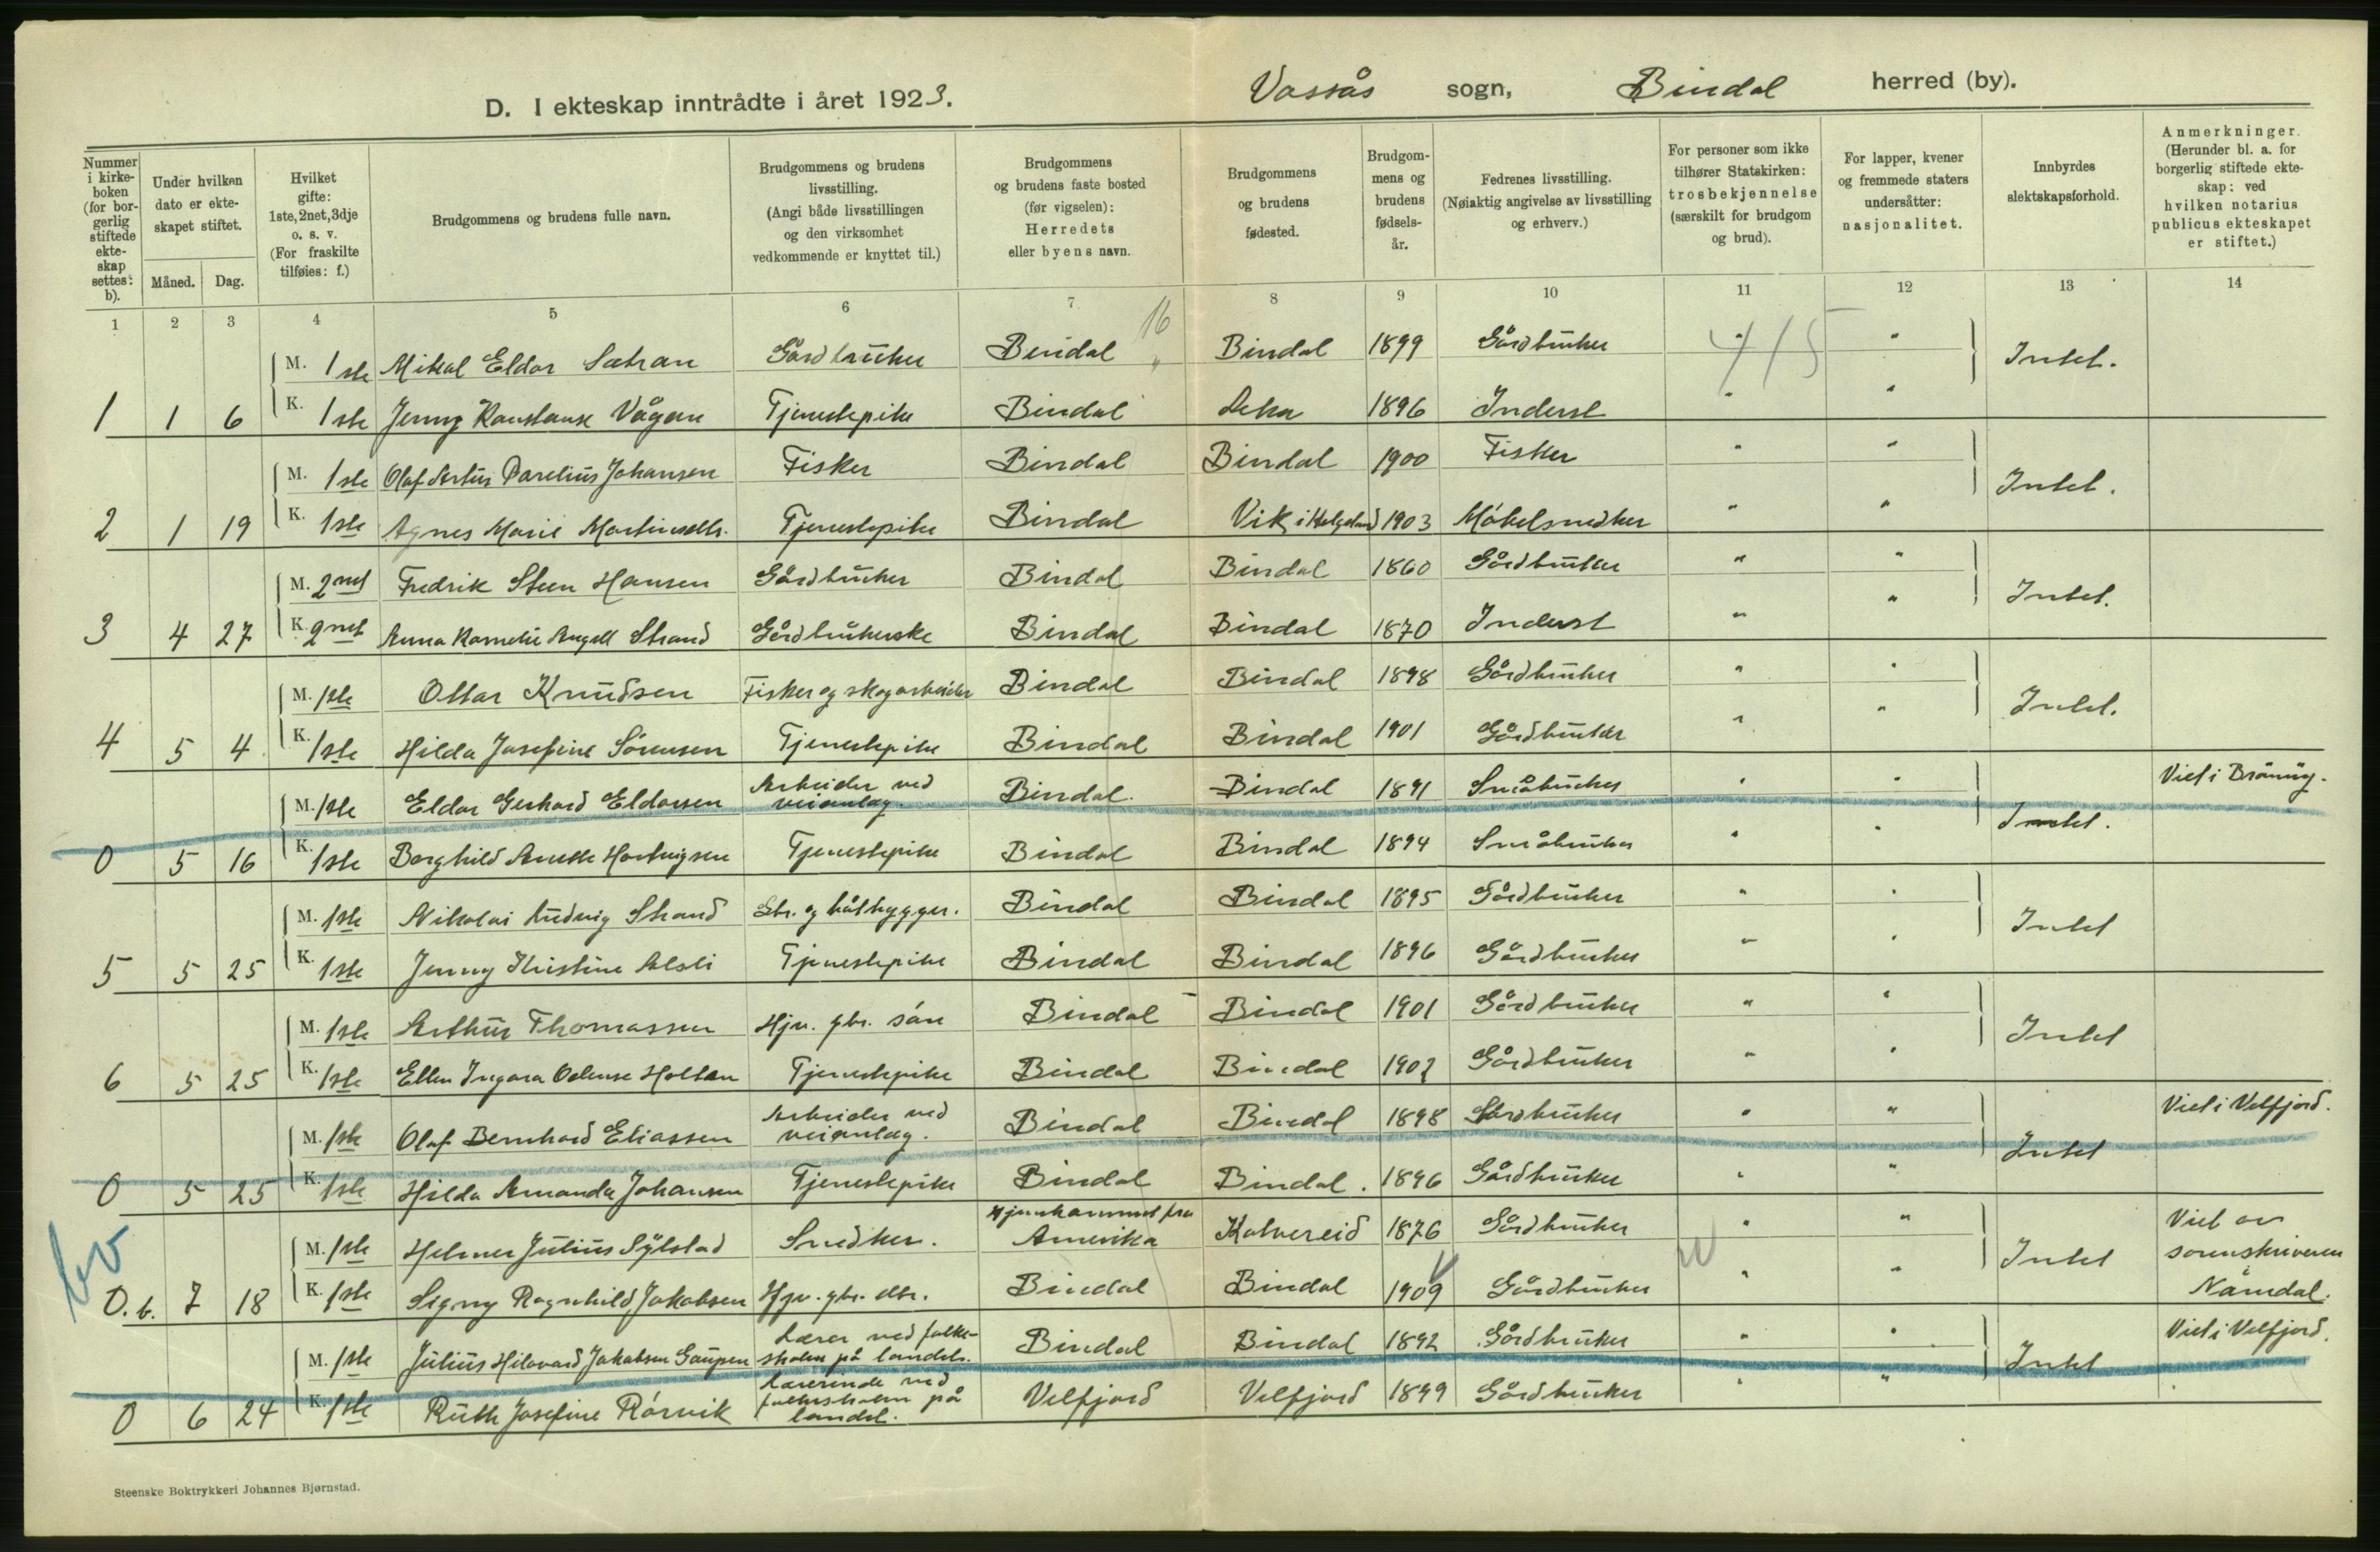 D. I ekteskap inntrådte i året 1923. Vassås sogn, Bindal herred (by).
Nummer i kirkeboken (for borgerlig stiftede ekteskap settes: b).
Under hvilken dato er ekteskapet stiftet.
Måned. Dag.
Hvilket gifte: 1ste, 2net, 3dje o. s. v. (For fraskilte tilføies: f.)
Brudgommens og brudens fulle navn.
Brudgommens og brudens livsstilling. (Angi både livsstillingen og den virksomhet vedkommende er knyttet til.)
Brudgommens og brudens faste bosted (før vigselen): Herredets eller byens navn.
Brudgommens og brudens fødested.
Brudgommens og brudens fødselsår.
Fedrenes livsstilling. (Nøiaktig angivelse av livsstilling og erhverv.)
For personer som ikke tilhører Statskirken: trosbekjennelse (særskilt for brudgom og brud).
For lapper, kvener og fremmede staters undersåtter: nasjonalitet.
Innbyrdes slektskapsforhold.
Anmerkninger. (Herunder bl. a. for borgerlig stiftede ekteskap: ved hvilken notarius publicus ekteskapet er stiftet.)
1 2 3 4 5 6 7 8 9 10 11 12 13 14
16
415
M. 1ste Mikal Eldor Sætran Gårdbruker Bindal " Bindal 1899 Gårdbruker " " Intet.
1 1 6 K. 1ste Jenny Konstanse Vågan Tjenestepike Bindal Leka 1896 Inderst " "
M. 1ste Olaf Artur Parelius Johansen Fisker Bindal Bindal 1900 Fisker " " Intet.
2 1 19 K. 1ste Agnes Marie Martinsdtr. Tjenestepike Bindal Vik i Helgeland 1903 Möbelsnedker " "
M. 2net Fredrik Steen Hansen Gårdbruker Bindal Bindal 1860 Gårdbruker " " Intet.
3 4 27 K. 2net Anna Kornelie Angell Strand Gårdbrukerske Bindal Bindal 1870 Inderst " "
M. 1ste Ottar Knudsen Fisker og skogarbeider Bindal Bindal 1898 Gårdbruker " " Intet.
4 5 4 K. 1ste Hilda Josefine Sörensen Tjenestepike Bindal Bindal 1901 Gårdbruker " "
M. 1ste Eldor Gerhard Eldorsen Arbeider ved veianlæg. Bindal. Bindal 1891 Småbruker " " Intet. Viet i Brönnöy.
0 5 16 K. 1ste Borghild Anette Hartvigsen Tjenestepike Bindal Bindal 1894 Småbruker " "
M. 1ste Nikolai Ludvig Strand Gbr. og båtbygger. Bindal Bindal 1895 Gårdbruker " " Intet
5 5 25 K. 1ste Jenny Kristine Alsli Tjenestepike Bindal Bindal 1896 Gårdbruker " "
M. 1ste Arthur Thomassen Hjv. gbr. sön Bindal Bindal 1901 Gårdbruker " " Intet
6 5 25 K. 1ste Ellen Ingara Odense Holten Tjenestepike Bindal Bindal 1902 Gårdbruker " "
M. 1ste Olaf Bernhard Eliassen Arbeider ved veianlæg. Bindal Bindal 1898 Gårdbruker " " Intet Viet i Velfjord.
0 5 25 K. 1ste Hilda Amanda Johansen Tjenestepike Bindal Bindal. 1896 Gårdbruker " "
M. 1ste Helmer Julius Sylstad Snedker. Hjemkommet fra Amerika Kolvereid 1876 Gårdbruker " " Intet Viet av sorenskriveren i Namdal.
0. b. 7 18 K. 1ste Signy Ragnhild Jakobsen Hjv. gbr. dtr. Bindal Bindal 1909 Gårdbruker " "
M. 1ste Julius Hilovard Jakobsen Gaupen Lærer ved folkeskolen på landet. Bindal Bindal 1892 Gårdbruker " " Intet Viet i Velfjord.
0 6 24 K. 1ste Ruth Josefine Rörvik Lærerinde ved folkeskolen på landet. Velfjord Velfjord 1899 Gårdbruker " "
Steenske Boktrykkeri Johannes Bjørnstad.